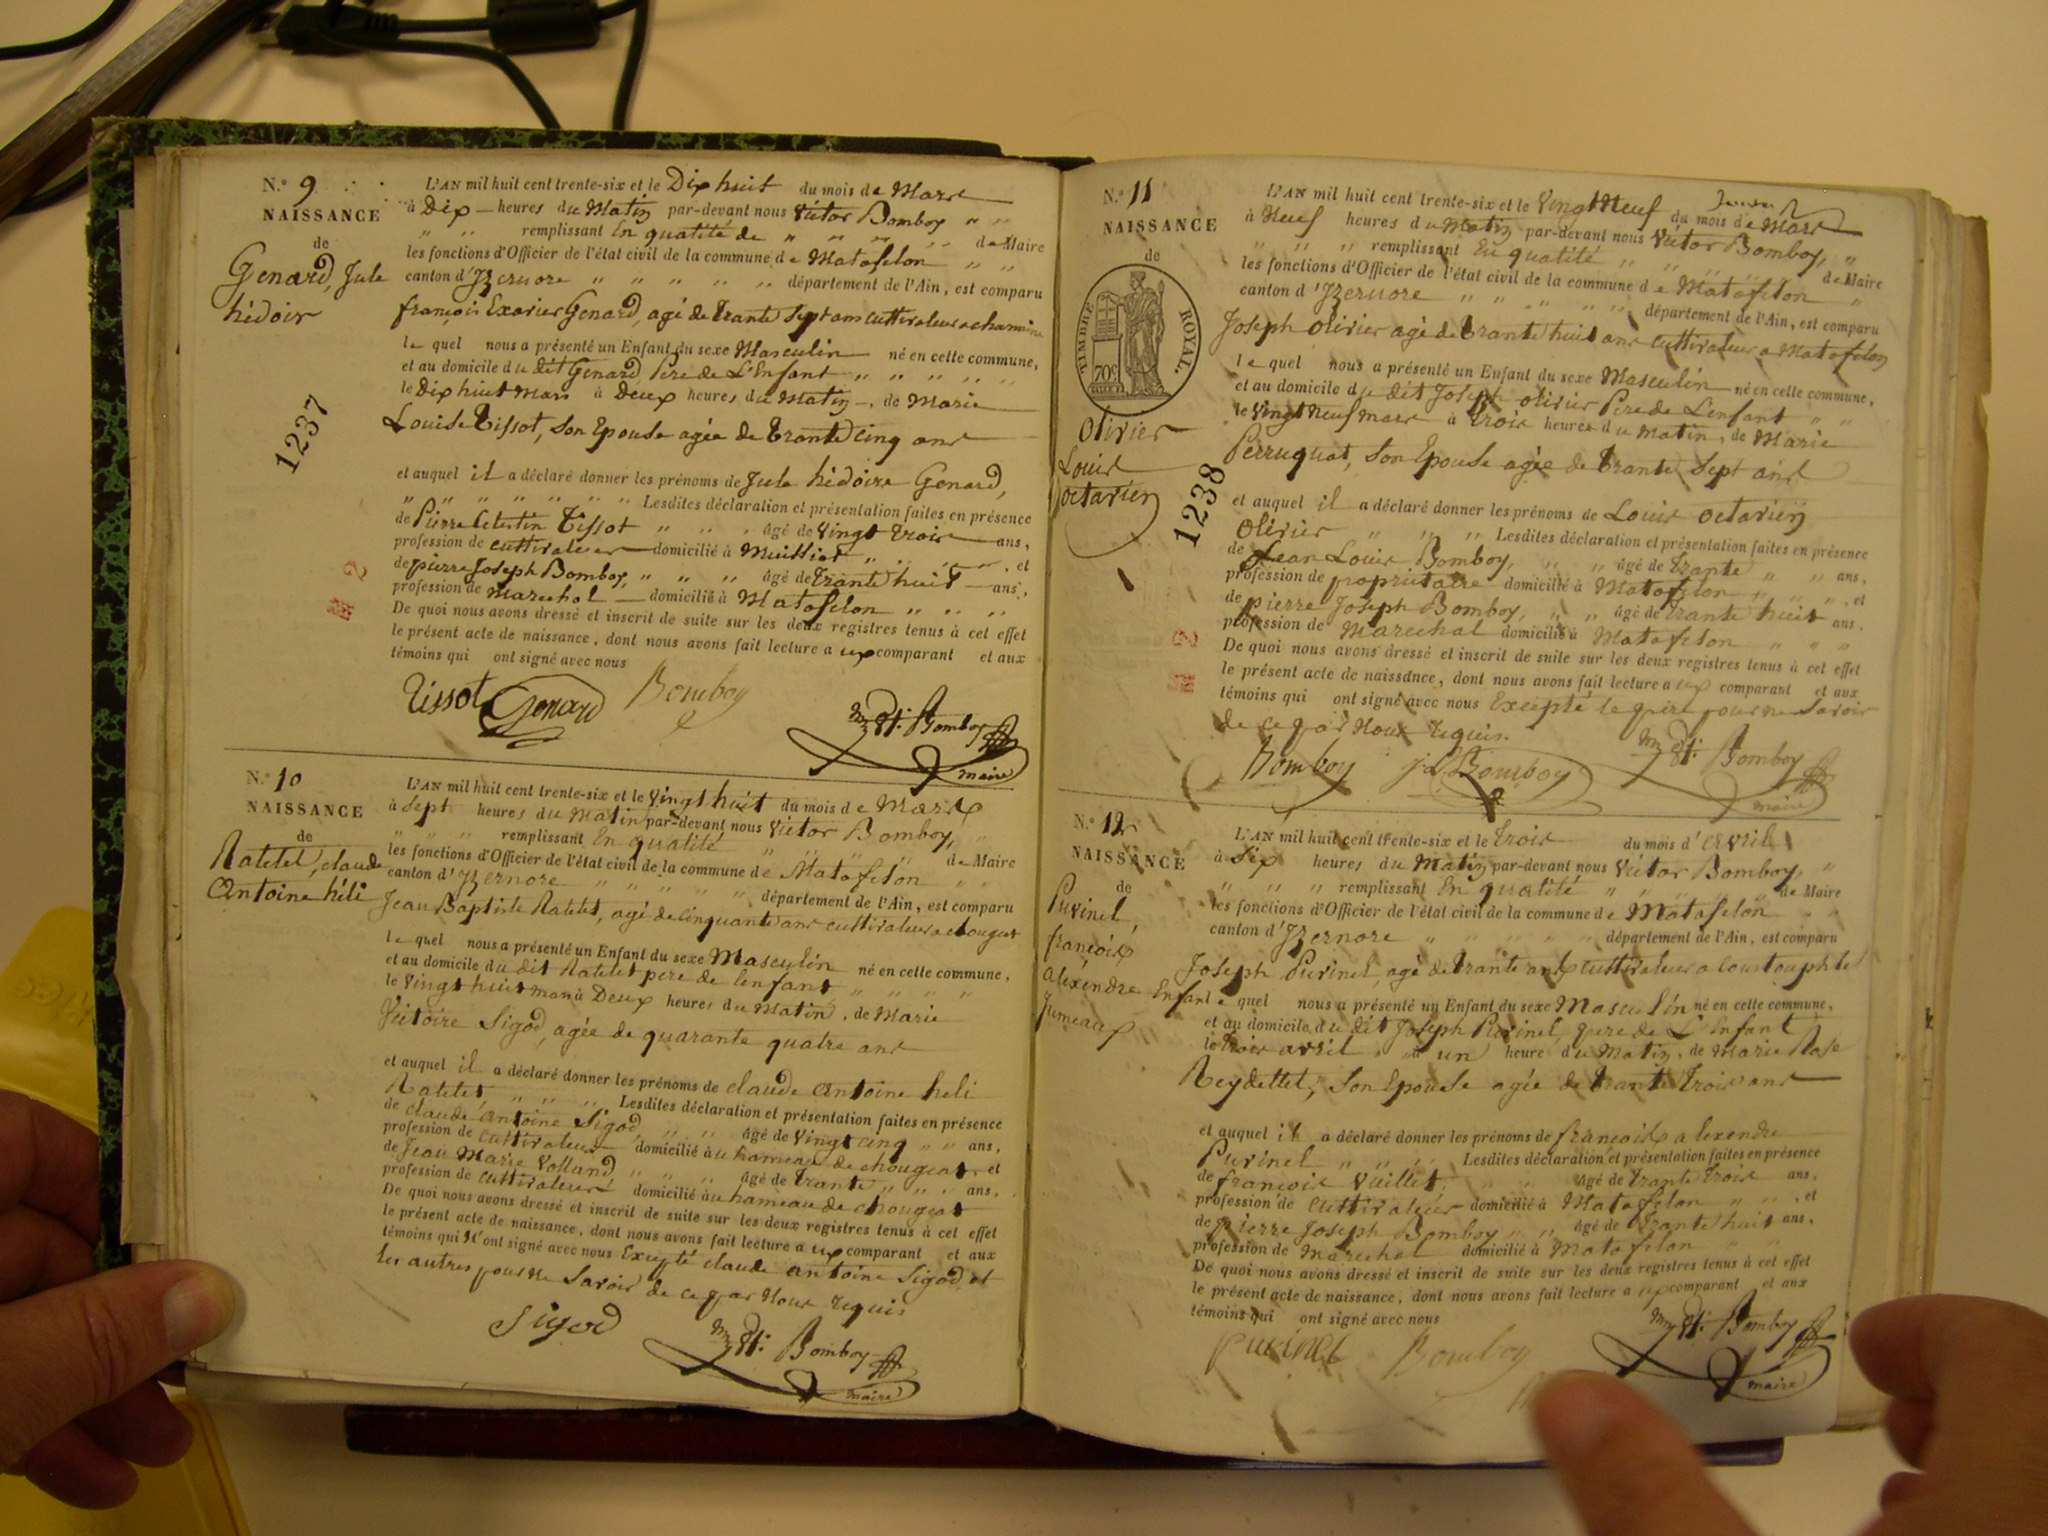 N.º 9
NAISSANCE
de
Genard, Jule
hédoir
1237
L'AN mil huit cent trente-six et le Dix huit du mois de Mars
à Dix heures du Matin par-devant nous Victor Bomboy " "
" " remplissant En qualité de " " " " de Maire
les fonctions d'Officier de l'état civil de la commune de Matafelon " "
canton d'Izernore " " " " " département de l'Ain, est comparu
françois Exavier Genard, agé de trante Sept ans cultivateur a
le quel nous a présenté un Enfant du sexe Masculin né en cette commune,
et au domicile du dit Genard, Pere de L'Enfant " " " " "
le Dix huit Mars à Deux heures du Matin, de Marie
Louise Tissot, Son Epouse agée de trante Cinq ans
et auquel il a déclaré donner les prénoms de Jule hédoire Genard,
" " " " " " " Lesdites déclaration et présentation faites en présence
de Pierre Celestin Tissot " " " âgé de Vingt trois ans,
profession de cultivateur domicilié à " " " , et
de pierre Joseph Bomboy, " " " âgé de trante huit ans,
profession de Marechal domicilié à Matafelon " " " "
De quoi nous avons dressé et inscrit de suite sur les deux registres tenus à cet effet
le présent acte de naissance, dont nous avons fait lecture a ux comparant et aux
témoins qui ont signé avec nous
Tissot Genard Bomboy Bomboy
maire
N.º 10
NAISSANCE
de
Ratelet, claude
Antoine héli
L'AN mil huit cent trente-six et le Vingt huit du mois de Mars
à Sept heures du Matin par-devant nous Victor Bomboy, "
" " " remplissant En qualité " " " " de Maire
les fonctions d'Officier de l'état civil de la commune de Matafelon " "
canton d'Izernore " " " " " département de l'Ain, est comparu
Jean Baptiste Ratelet, agé de cinquante ans cultivateur a chougeat
le quel nous a présenté un Enfant du sexe Masculin né en cette commune,
et au domicile du dit Ratelet pere de lenfant " " " "
le Vingt huit mars à Deux heures du Matin, de Marie
Victoire Sigod, agée de quarante quatre ans
et auquel il a déclaré donner les prénoms de claude antoine heli
Ratelet " " " " Lesdites déclaration et présentation faites en présence
de claude antoine Sigod, " " " âgé de Vingt cinq " " ans,
profession de cultivateur domicilié au hameau de chougeat et
de Jean Marie Volland " " " âgé de trante " " " ans,
profession de cultivateur domicilié au hameau de chougeat
De quoi nous avons dressé et inscrit de suite sur les deux registres tenus à cet effet
le présent acte de naissance, dont nous avons fait lecture a ux comparant et aux
témoins qui n'ont signé avec nous Excepté claude antoine Sigod, et
les autres pour ne Savoir de ce par Nous requis
Sigod Bomboy
maire
N.º 11
NAISSANCE
de
TIMBRE ROYAL.
70c
Olivier
Louis
octavien
1238
L'AN mil huit cent trente-six et le Vingt Neuf du mois de Mars
à Neuf heures du Matin par-devant nous Victor Bomboy, "
" " " remplissant En qualité " " " " de Maire
les fonctions d'Officier de l'état civil de la commune de Matafelon "
canton d'Izernore " " " " " département de l'Ain, est comparu
Joseph Olivier agé de trante huit ans cultivateur a Matafelon
le quel nous a présenté un Enfant du sexe Masculin né en cette commune,
et au domicile du dit Joseph olivier Pere de L'enfant " "
le Vingt Neuf mars à trois heures du Matin, de Marie
Perruquat, Son Epouse agée de trante Sept ans
et auquel il a déclaré donner les prénoms de Louis octavien
Olivier " " " Lesdites déclaration et présentation faites en présence
de Jean Louis Bomboy, " " âgé de trante " " ans,
profession de proprietaire domicilié à Matafelon " " " , et
de pierre Joseph Bomboy, " " âgé de trante huit ans.
profession de Marechal domicilié à Matafelon " " "
De quoi nous avons dressé et inscrit de suite sur les deux registres tenus à cet effet
le présent acte de naissance, dont nous avons fait lecture a ux comparant et aux
témoins qui ont signé avec nous Excepté le pere pour ne Savoir
de ce par Nous requis.
Bomboy j L Bomboy Bomboy
maire
N.º 12
NAISSANCE
de
Puvinel,
françois
aléxendre Enfant
Jumeaux
L'AN mil huit cent trente-six et le trois du mois d'avril
à Six heures du Matin par-devant nous Victor Bomboy, "
" " " remplissant En qualité " " " " de Maire
les fonctions d'Officier de l'état civil de la commune de Matafelon " "
canton d'Izernore " " " " " département de l'Ain, est comparu
Joseph Puvinel, agé de trante ans cultivateur a
le quel nous a présenté un Enfant du sexe Masculin né en cette commune,
et au domicile du dit Joseph Puvinel, pere de L'Enfant
le trois avril à un heure du Matin, de Marie Rose
Reydellet, Son Epouse agée de trante trois ans
et auquel il a déclaré donner les prénoms de françois alexendre
Puvinel " " " " Lesdites déclaration et présentation faites en présence
de françois Vuillet, " " âgé de trante trois ans,
profession de cultivateur domicilié à Matafelon " " , et
de pierre Joseph Bomboy " " âgé de trante huit ans,
profession de Marechal domicilié à Matafelon " "
De quoi nous avons dressé et inscrit de suite sur les deux registres tenus à cet effet
le présent acte de naissance, dont nous avons fait lecture a ux comparant et aux
témoins qui ont signé avec nous
Puvinel Bomboy Bomboy
maire